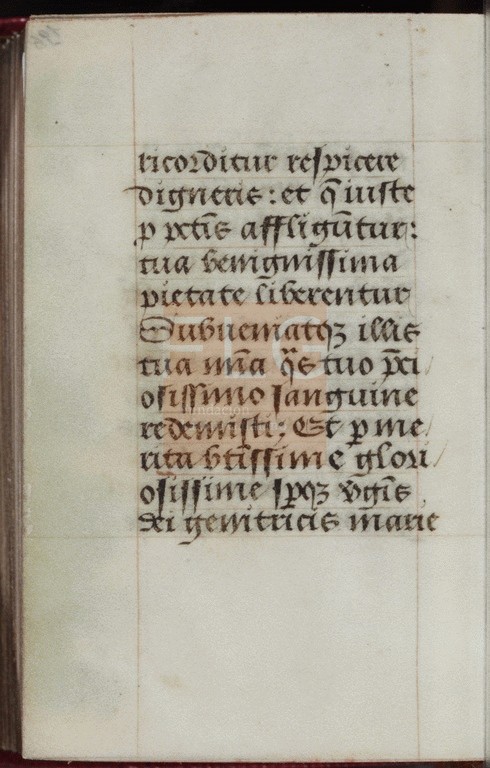 ricorditur respicere
digneris: et q̄ iuste
p pctīs affligūtur:
tua benignissima
pietate liberentur
Subueniatqꝫ illis
tua mīa q̄s tuo p̄ci
osissimo sanguine
redemisti: Et p me
rita btīssime glori
osissime spqꝫ v̄gīs
dei genitricis marie